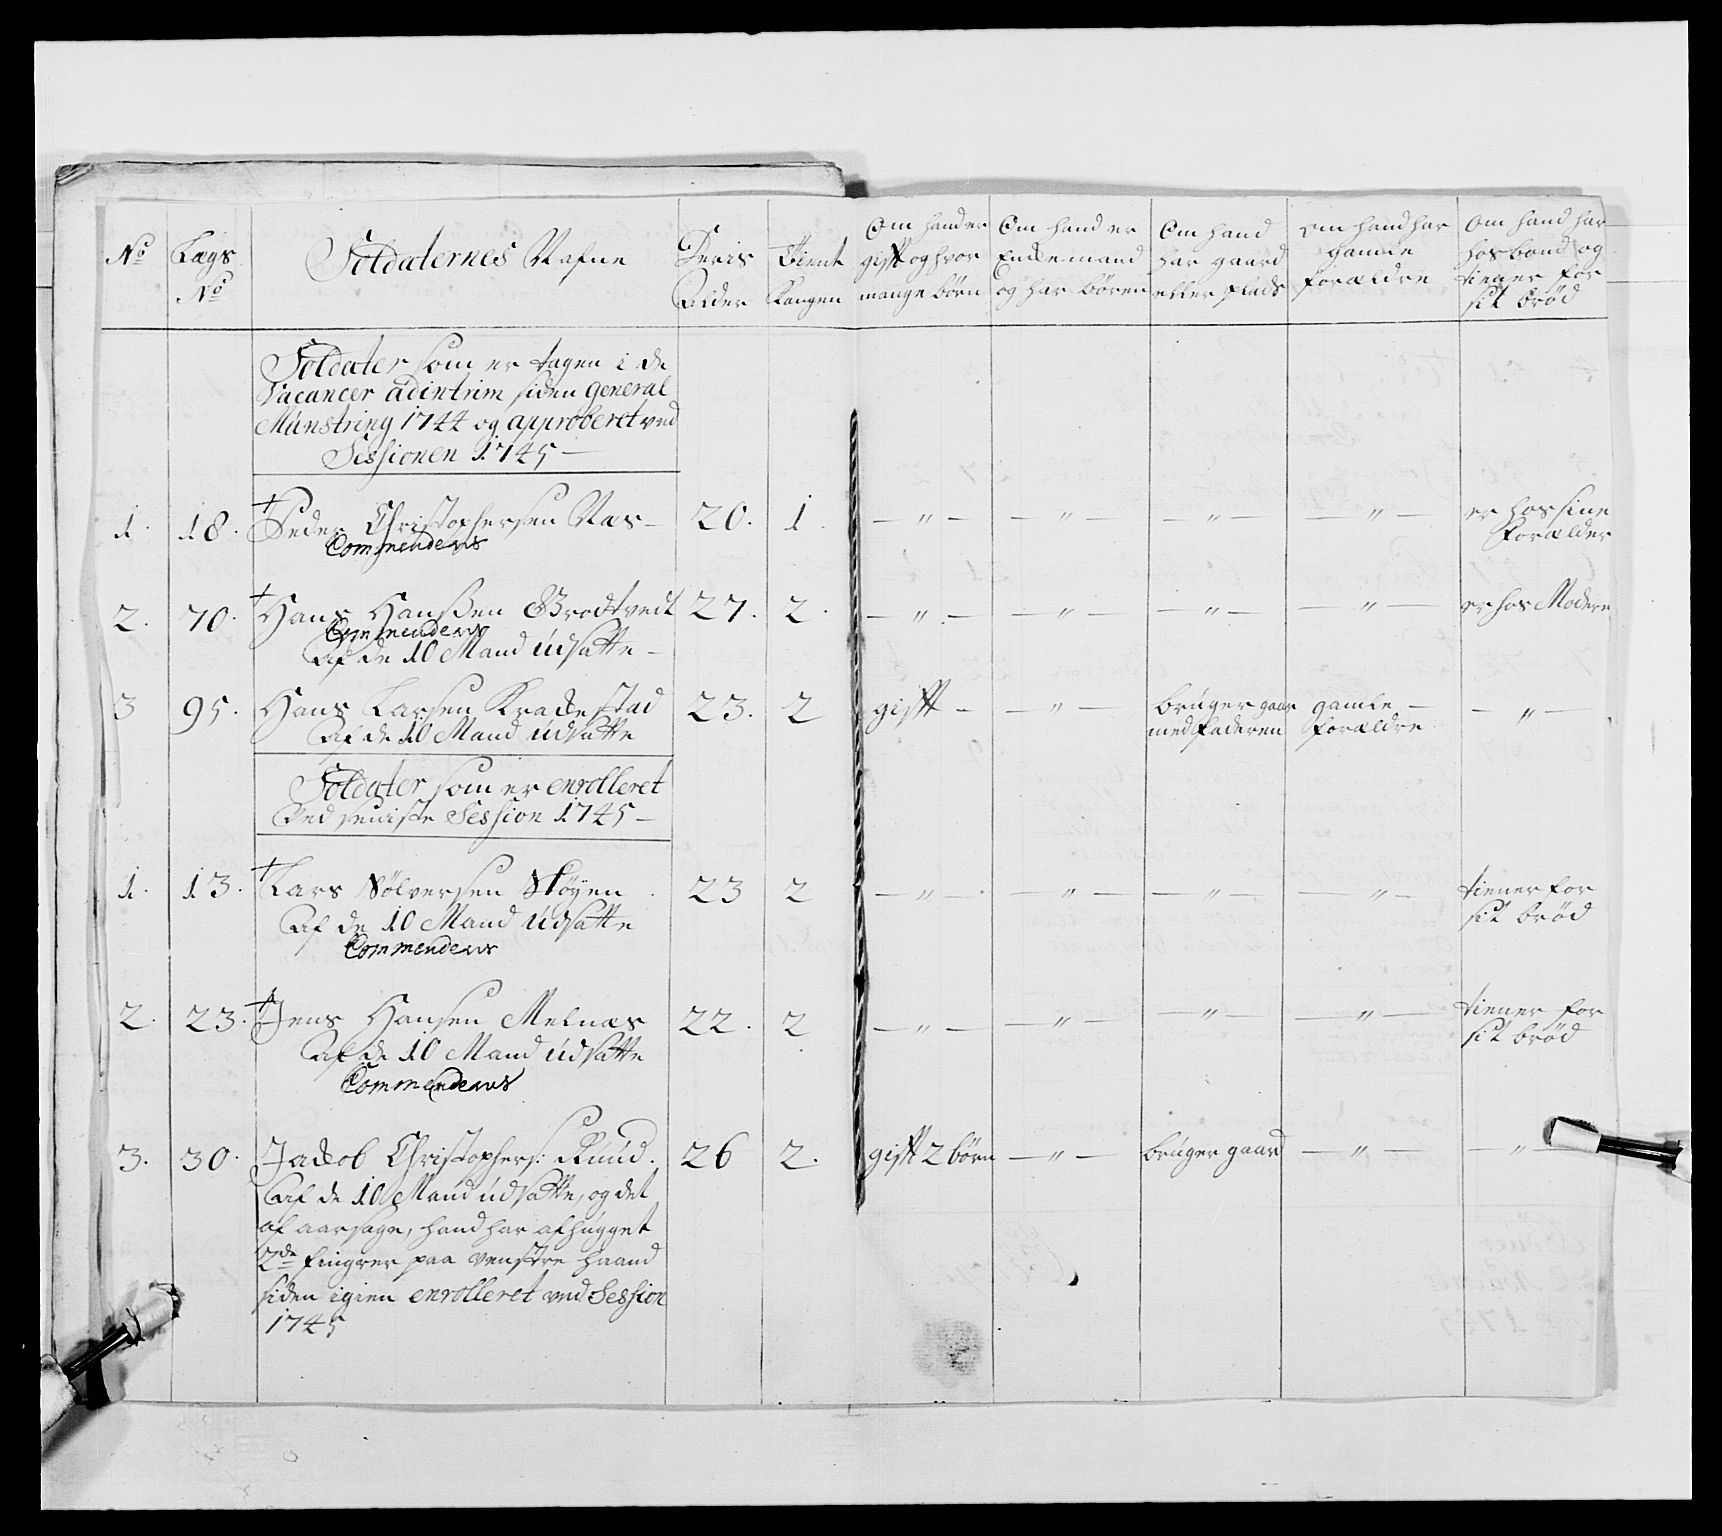 No Lægs No Soldaternes Nafne Deris Alder Tient Kongen Om hand er gift og hvor mange børn Om hand er Enckemand og har børen Om hand har gaard eller plads Om hand har gamle forældre Om hand har hosbond og tiener for sit brød
Soldater som er tagen i de
Vacancer adintrim siden General
Munstring 1744 og approberet ved
Sessionen 1745 —
1. 18. † Peder Christophersen Næs — 20. 1. — " — — " — — " — — " — er hos sine
Commenderes forælder
2. 70. † Hans Hanßen Brodtvedt 27. 2. — " — — " — — " — — " — er hos Modere
Commenderes
Af de 10 Mand udsatte —
3 95. Hans Larsen Krackestad 23. 2 gifft — — " — bruger gaar gamle — — " —
Af de 10 Mand udsatte med faderen forældre
Soldater som er enrolleret
Ved seniste Session 1745 —
1. 13. † Lars Sølversen Støyen 23 2 — " — — " — — " — — " — tiener for
Af de 10 Mand udsatte sit brød
Commenderes
2. 23. † Jens Hansen Melnæs 22. 2 — " — — " — — " — — " — tiener for
Af de 10 Mand udsatte sit brød
Commenderes
3. 30. Jacob Christophers: Ruud. 26 2. gift 2 børn — " — bruger gaard — " — — " —
Af de 10 Mand udsatte, og det
af aarsage, hand har afhugget
2de fingrer paa venstre haand
siden igien enrolleret ved Session
1745